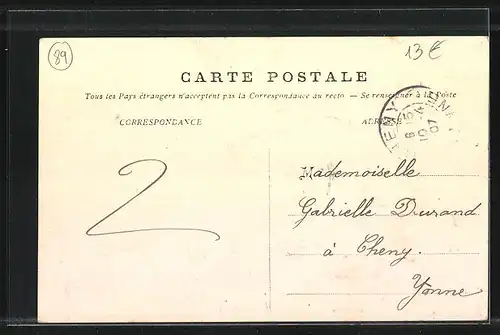 89
13€
CARTE POSTALE
Tous les Pays étrangers n'acceptent pas la Correspondance au recto — Se renseigner à la Poste
CORRESPONDANCE
ADRESSE
2
Mademoiselle
Gabrielle Durand
à Cheny.
Yonne